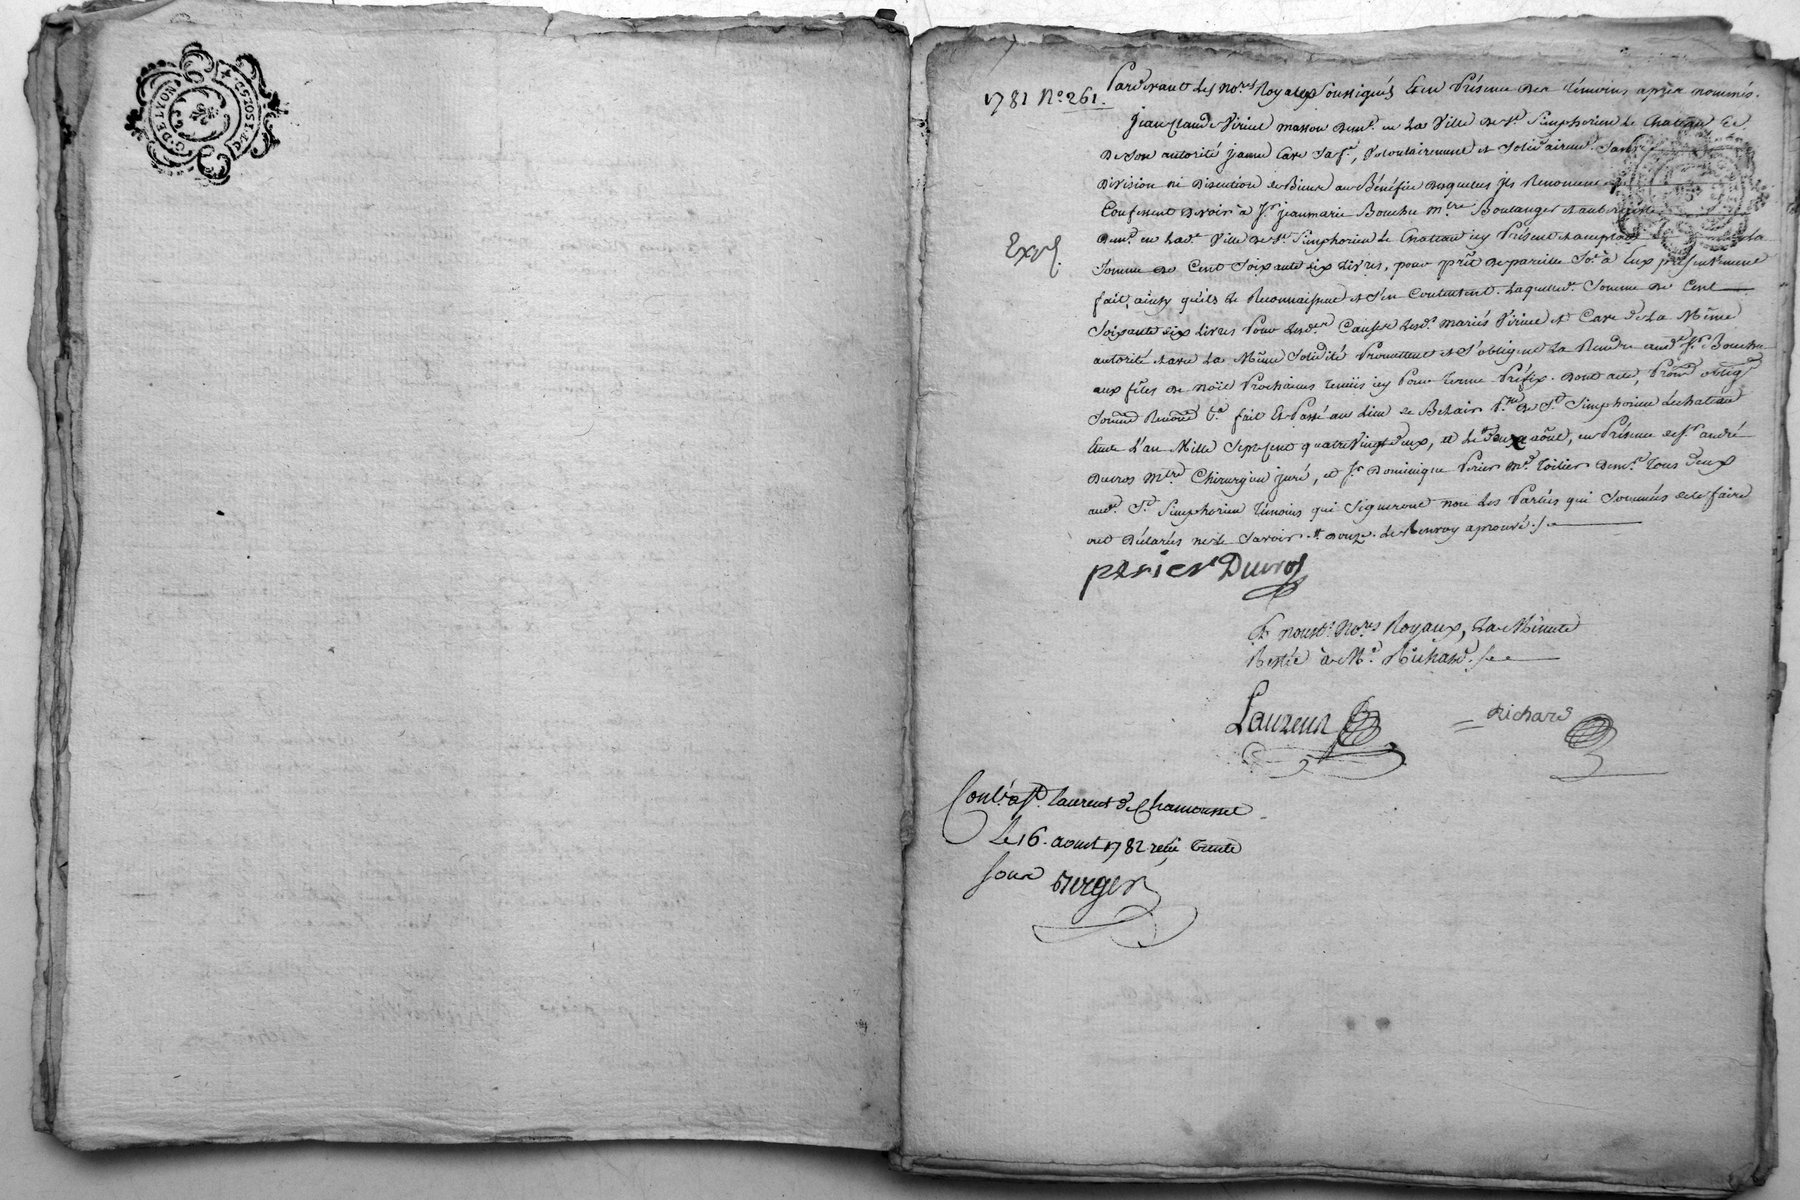 G. DE LYON
2 SOLS 2 D
1781 No. 261.
Pardevant les nores Royaux soussignés Et en Présence des témoins après nommés.
Jean Claude Virieu masson demt. en La Ville de st. Simphorien Le Chateau Et
de son autorité jeanne Care sa fe, volontairement et solidairemt. sans
division ni discution de Biens au Bénéfice desquelles ils Renoncent
Confessent devoir à sr. jeanmarie Bouchu mtre Boulanger et aubergiste
demt. en Lade. Ville de st. Simphorien Le Chateau icy Présent et acceptant La
Somme de Cent soixante six Livres, pour prêt de pareille so. à Eux présentement
fait, ainsy qu'ils le Reconnaissent et s'en Contentent. Laquelle. somme de Cent
Expé.
Soixante six Livres Pour lesdes. Causes Lesds. mariés Virieu et Care de La Même
autorité et avec La Même solidité Promettent et s'obligent La Rendre audt. sr. Bouchu
aux fêtes de noël Prochaines venant icy Pour terme Préfix. Dont acte, Prom. oblig.
Soum. Renon. Ca. fait Et Passé au Lieu de Belair Psse de St. Simphorien Lechateau
Etude L'an Mille Sept Cent quatrevingt deux, et Le deux août, en Présence de sr. andré
Ducros mtre Chirurgien juré, et sr. Dominique Perier md. toilier demt. tous deux
aud. St. Simphorien témoins qui signeront non les Parties qui sommées de le faire
ont déclarés ne le savoir. # douze. Le Renvoy aprouvé. /.
perier Ducros
Et nousds. Nores Royaux, La Minute
Restée à Me. Richard. /.
Laurent
Richard
Contlé. à st. laurent de Chamousset
Le 16. aoust 1782 reçu trente
sous Verger